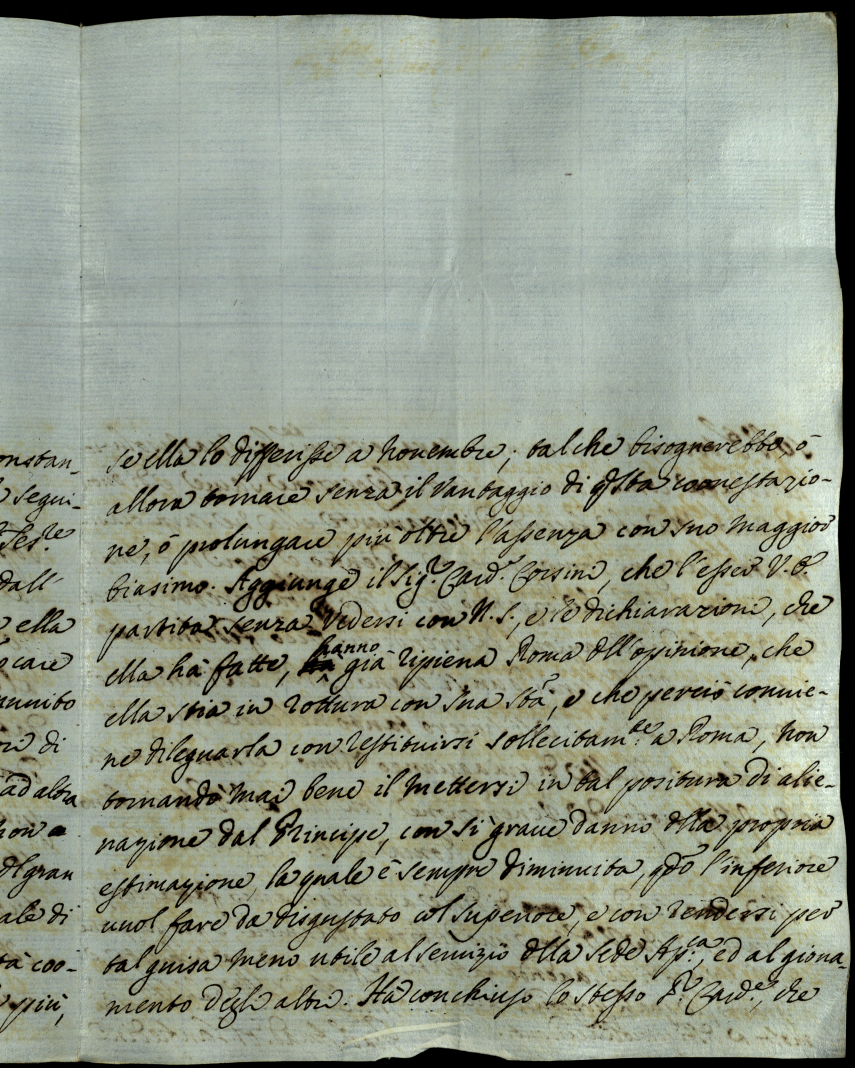 onstan-
segui-
dall'
ella
care
di
ad altra
non a
d'gran
ale di
tà coo-
più,
se ella lo differisse a Novembre; talche bisognerebbe, ò
allora tornare senza il vantaggio di qsta coonestazio-
ne, ò prolungare più oltre l'assenza con suo maggior
biasimo. Aggiunge il Sig.r Card.l Corsini, che l'esser V.E.
partita senza vedersi con N.S., e le dichiarazioni, che
ella hà fatte, hanno già ripiena Roma dll'opinione, che
ella stia in rottura con Sua Stà, e che perciò convie-
ne dileguarla con restituirsi sollecitam.te a Roma, non
tornando mai bene il mettersi in tal positura di alie-
nazione dal Principe, con sì grave danno dlla propria
estimazione, la quale è sempre diminuita, qdo l'inferiore
vuol fare da disgustato col superiore, e con rendersi per
tal guisa meno utile al servizio dlla Sede Ap.ca, ed al giova-
mento degli altri. Hà conchiuso lo stesso S.r Card.e, che